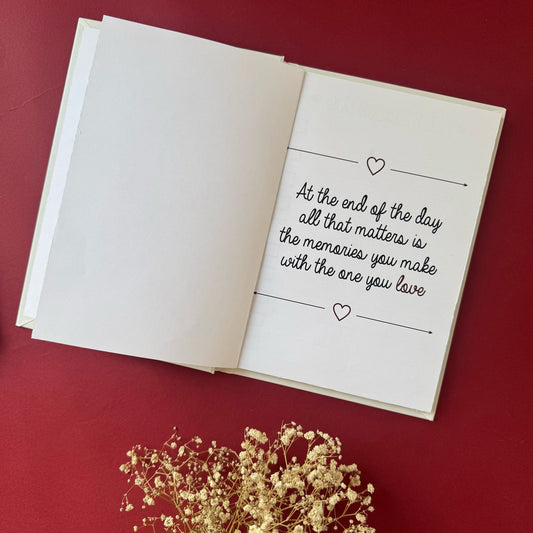 At the end of the day
all that matters is
the memories you make
with the one you love